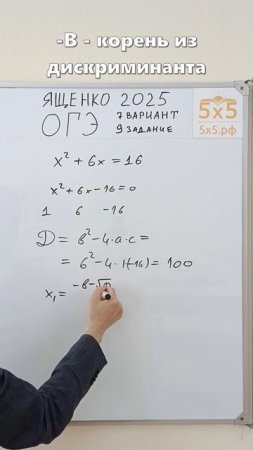 -В - корень из
дискриминанта
ЯЩЕНКО 2025
ОГЭ
7 ВАРИАНТ
9 ЗАДАНИЕ
5х5
5х5.рф
x² + 6x = 16
x² + 6x - 16 = 0
1 6 -16
D = b² - 4·a·c =
= 6² - 4·1·(-16) = 100
x₁ = -b - √